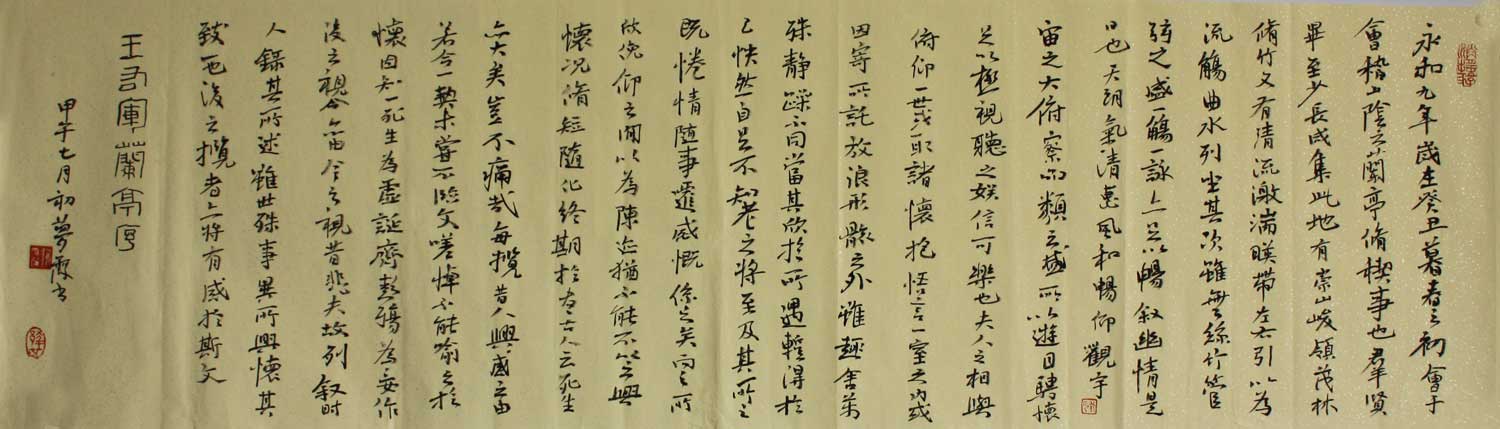 永和九年歲在癸丑暮春之初會于
會稽山陰之蘭亭脩稧事也羣賢
畢至少長咸集此地有崇山峻領茂林
脩竹又有清流激湍暎帶左右引以為
流觴曲水列坐其次雖無絲竹管
弦之盛一觴一詠亦足以暢敘幽情是
日也天朗氣清惠風和暢仰觀宇
宙之大俯察品類之盛所以遊目騁懷
足以極視聽之娛信可樂也夫人之相與
俯仰一世或取諸懷抱悟言一室之內或
因寄所託放浪形骸之外雖趣舍萬
殊靜躁不同當其欣於所遇暫得於
己怏然自足不知老之將至及其所之
既惓情隨事遷感慨係之矣向之所
欣俛仰之間以為陳迹猶不能不以之興
懷況脩短隨化終期於盡古人云死生
亦大矣豈不痛哉每攬昔人興感之由
若合一契未嘗不臨文嗟悼不能喻之於
懷固知一死生為虛誕齊彭殤為妄作
後之視今亦由今之視昔悲夫故列敘時
人錄其所述雖世殊事異所以興懷其
致一也後之攬者亦將有感於斯文
王右軍蘭亭序
甲午七月初夢霞書